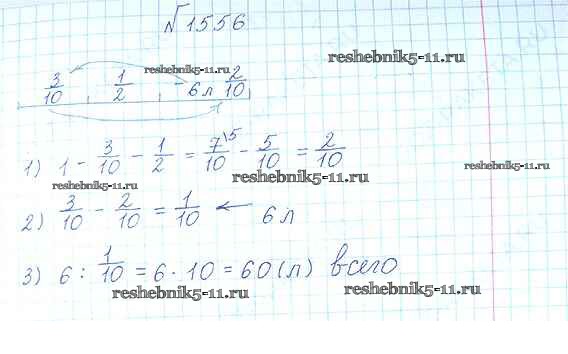 №1556
reshebnik5-11.ru
3/10 1/2 reshebnik5-11.ru - 6л 2/10
1) 1 - 3/10 - 1/2 = 7/10 \5 - 5/10 = 2/10
reshebnik5-11.ru reshebnik5-11.ru reshebnik5-11.ru
2) 3/10 - 2/10 = 1/10 ← 6 л
3) 6 : 1/10 = 6 · 10 = 60 (л) всего
reshebnik5-11.ru reshebnik5-11.ru